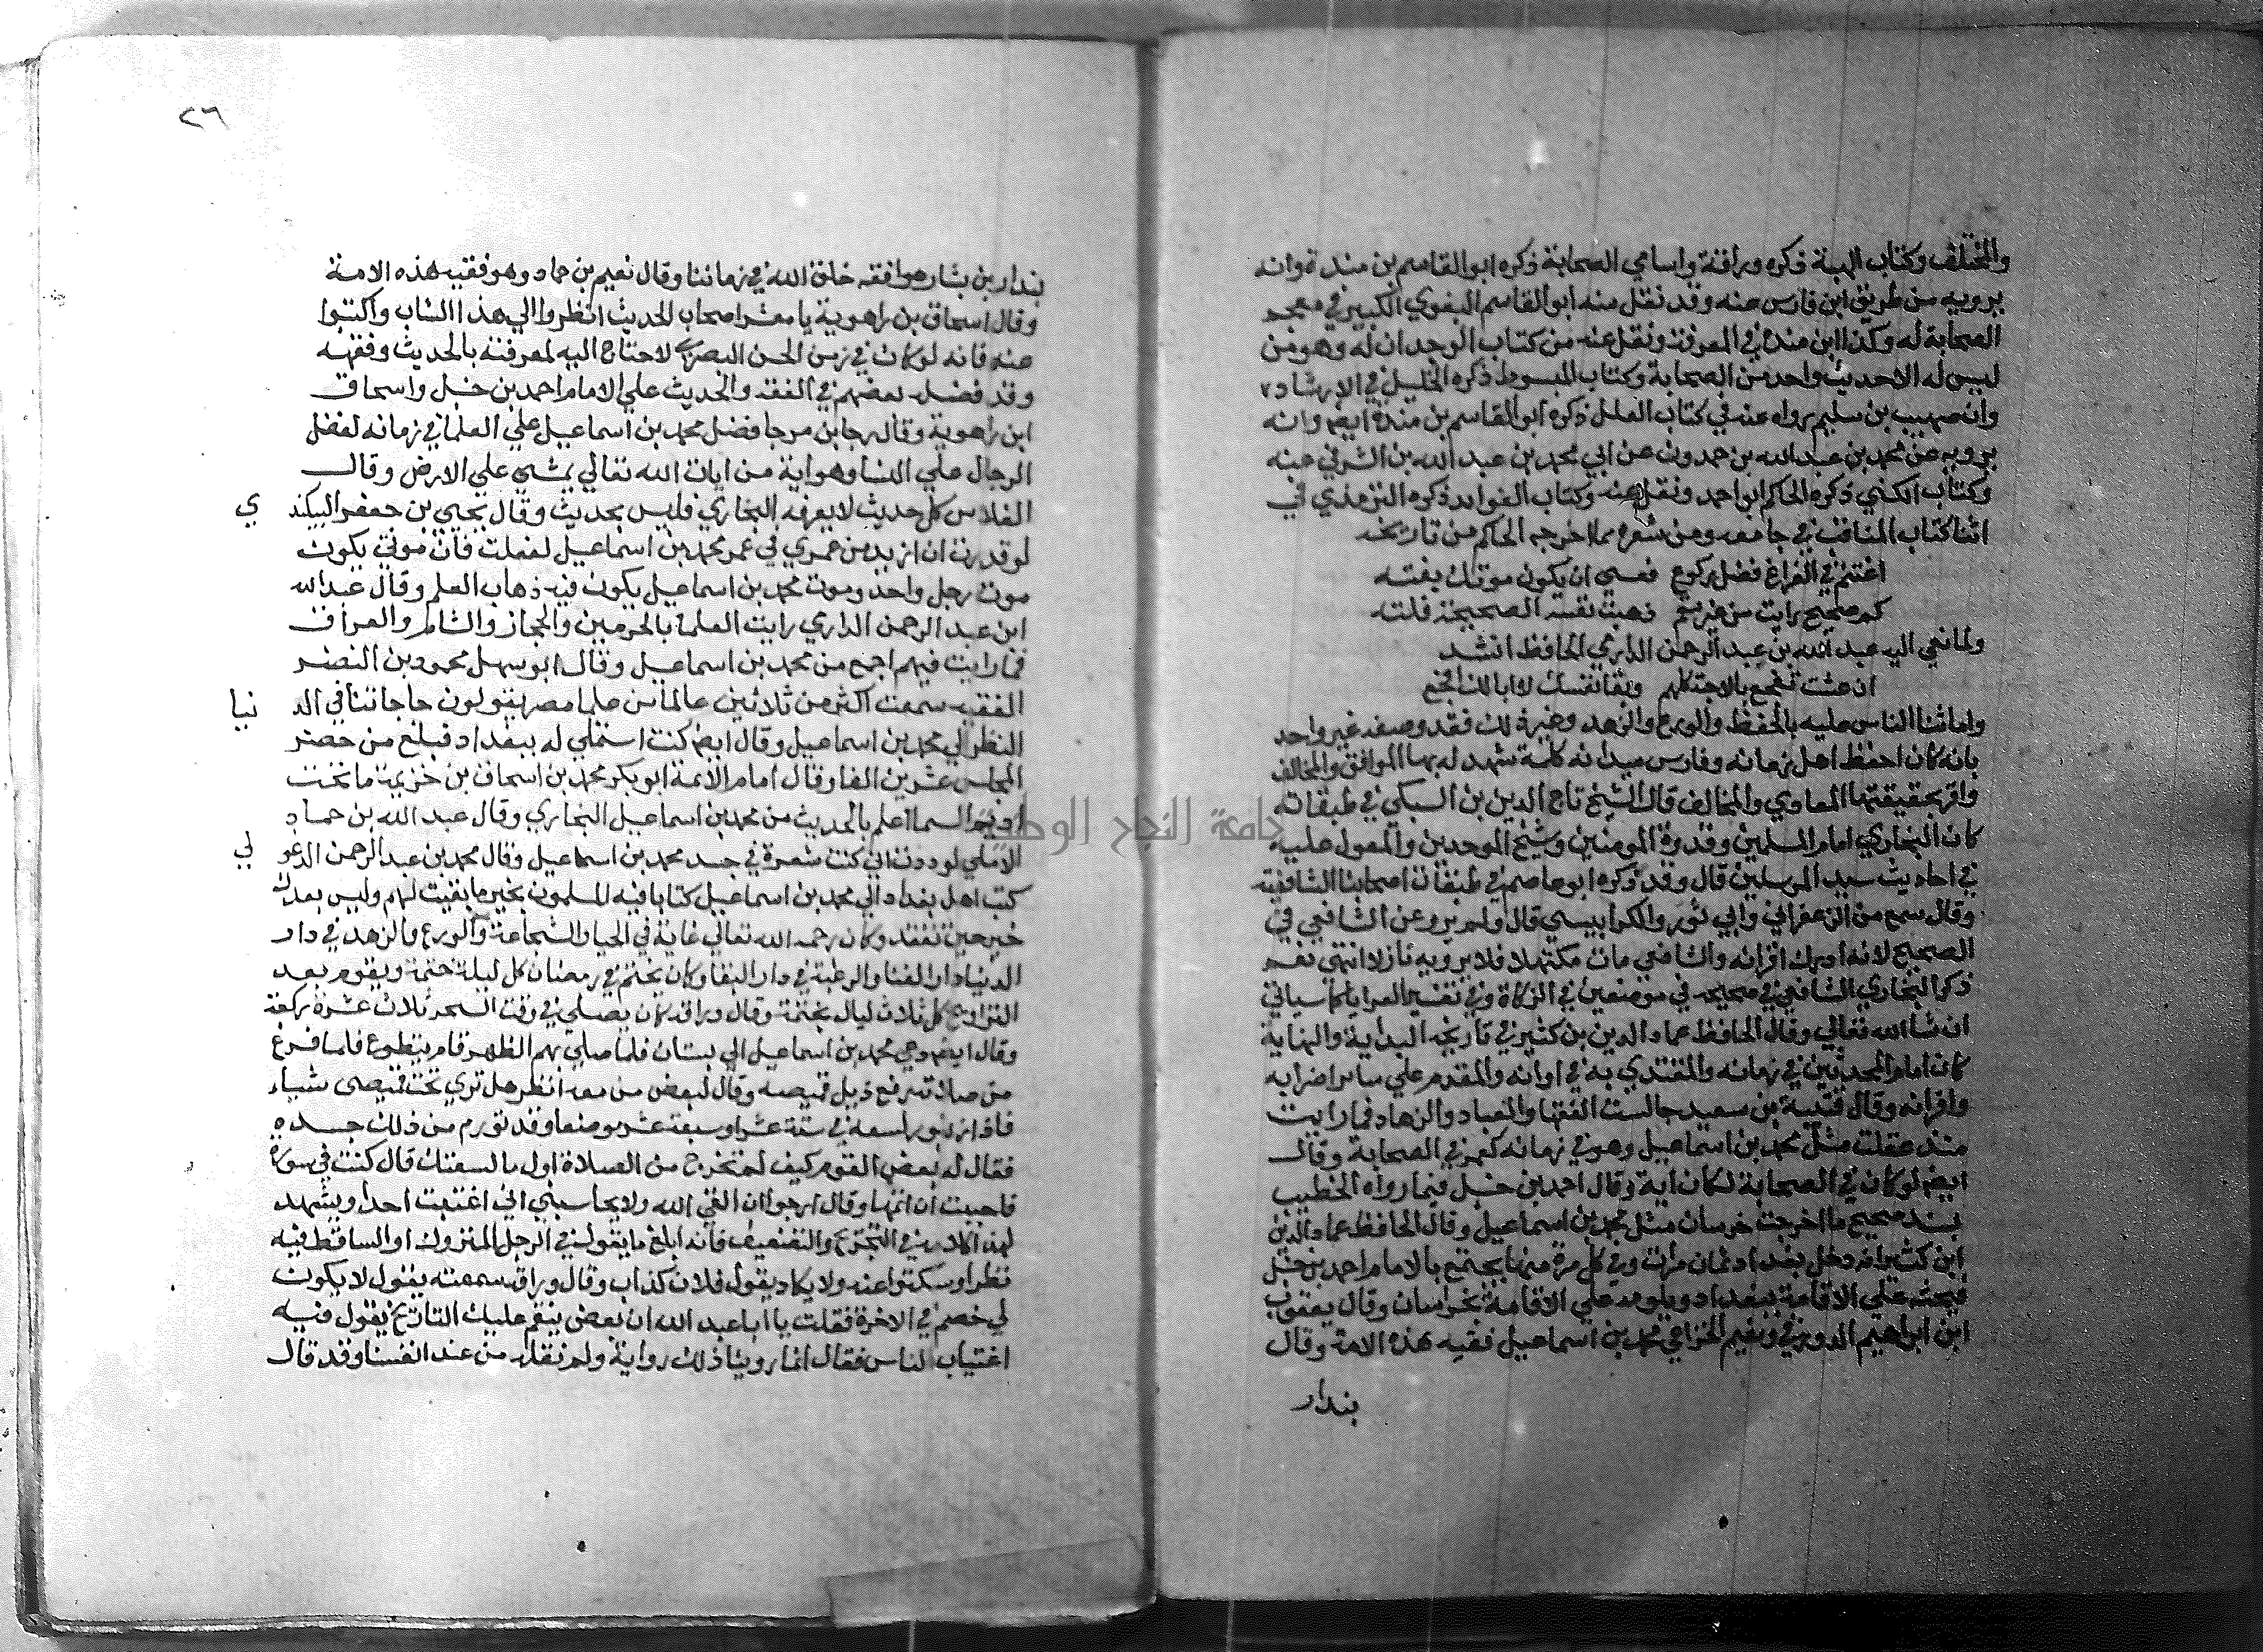 والمختلف وكتاب الهبة ذكره وراقة واسامي الصحابة ذكره ابو القاسم بن مندة وانه
يرويه من طريق ابن فارس عنه وقد نقل منه ابو القاسم البغوي الكبير في معجمه
الصحابة له وكذا ابن مندة في المعرفة ونقل عنه من كتاب الوحدان له وهو من
ليس له الا حديث واحد من الصحابة وكتاب المبسوط ذكره الخليلي في الارشاد
وان مهيب بن سليم رواه عنه في كتاب العلل ذكره ابو القاسم بن مندة ايضا وانه
يرويه عن محمد بن عبد الله بن حمدون عن ابي محمد بن عبد الله بن الشرقي عنه
وكتاب الكني ذكره الحاكم ابو احمد ونقل عنه وكتاب الفوايد ذكره الترمذي في
اثنا كتاب المناقب في جامعه ومن شعره مما اخرجه الحاكم من تاريخه
اغتنم في الفراغ فضل ركوع فعسي ان يكون موتك بغته
كم صحيح رايت من غير سقم ذهبت نفسه الصحيحة فلته
ولما نعي اليه عبد الله بن عبد الرحمن الداري الحافظ انشد
ان عشت تفجع بالاحبة كلهم وبقا نفسك لا ابا لك افجع
واما ثنا الناس عليه بالحفظ والورع والزهد وغير ذلك فقد وصفه غير واحد
بانه كان احفظ اهل زمانه وفارس ميدانه كلمة شهد له بها الموافق والمخالف
واقر بحقيقتها المعادي والمحالف قال الشيخ تاج الدين بن السبكي في طبقاته
كان البخاري امام المسلمين وقدوة المومنين وشيخ الموحدين والمعول عليه
في احاديث سيد المرسلين قال وقد ذكره ابو عاصم في طبقات اصحابنا الشافعية
وقال سمع من الزعفراني وابي ثور والكرابيسي قال ولم يرو عن الشافعي في
الصحيح لانه ادرك اقرانه والشافعي مات مكتهلا فلا يرويه نازلا انتهي نعم
ذكر البخاري الشافعي في صحيحه في موضعين في الزكاة وفي تفسير العرايا كما سياتي
ان شا الله تعالي وقال الحافظ عماد الدين بن كثير في تاريخه البداية والنهاية
كان امام المحدثين في زمانه والمقتدي به في اوانه والمقدم علي ساير اضرابه
واقرانه وقال قتيبة بن سعيد جالست الفقها والعباد والزهاد فما رايت
منذ عقلت مثل محمد بن اسماعيل وهو في زمانه كعمر في الصحابة وقال
ايضا لو كان في الصحابة لكان اية وقال احمد بن حنبل فيما رواه الخطيب
بسند صحيح ما اخرجت خرسان مثل محمد بن اسماعيل وقال الحافظ عماد الدين
ابن كثير انه دخل بغداد ثمان مرات وفي كل مرة منها يجتمع بالامام احمد بن حنبل
فيحثه علي الاقامة ببغداد ويلومه علي الاقامة بخراسان وقال يعقوب
ابن ابراهيم الدورقي ونعيم الخزاعي محمد بن اسماعيل فقيه هذه الامة وقال
بندار
٢٦
بندار بن بشار هو افقه خلق الله في زماننا وقال نعيم بن حماد وهو فقيه هذه الامة
وقال اسحاق بن راهوية يا معشر اصحاب الحديث انظروا الي هذا الشاب واكتبوا
عنه فانه لو كان في زمن الحسن البصري لاحتاج اليه لمعرفته بالحديث وفقهه
وقد فضله بعضهم في الفقه والحديث علي الامام احمد بن حنبل واسحاق
ابن راهوية وقال رجا بن مرجا فضل محمد بن اسماعيل علي العلما في زمانه لفضل
الرجال علي النسا وهو اية من ايات الله تعالي يمشي علي الارض وقال
الفلاس كل حديث لا يعرفه البخاري فليس بحديث وقال يحيي بن جعفر البيكندي
لو قدرت ان ازيد من عمري في عمر محمد بن اسماعيل لفعلت فان موتي يكون
موت رجل واحد وموت محمد بن اسماعيل يكون فيه ذهاب العلم وقال عبد الله
ابن عبد الرحمن الداري رايت العلما بالحرمين والحجاز والشام والعراق
فما رايت فيهم اجمع من محمد بن اسماعيل وقال ابو سهل محمود بن النضر
الفقيه سمعت اكثر من ثلاثين عالما من علما مصر يقولون حاجاتنا في الدنيا
النظر الي محمد بن اسماعيل وقال ايضا كنت استملي له ببغداد فبلغ من حضر
المجلس عشرين الفا وقال امام الائمة ابو بكر محمد بن اسحاق بن خزيمة ما تحت
اديم السما اعلم بالحديث من محمد بن اسماعيل البخاري وقال عبد الله بن حماد
الاملي لوددت اني كنت شعرة في جسد محمد بن اسماعيل وقال محمد بن عبد الرحمن الدغولي
كتب اهل بغداد الي محمد بن اسماعيل كتابا فيه المسلمون بخير ما بقيت لهم وليس بعدك
خير حين تفتقد وكان رحمه الله تعالي غاية في الحيا والشجاعة والورع والزهد في دار
الدنيا دار الفنا والرغبة في دار البقا وكان يختم في رمضان كل ليلة ختمة ويقوم بعد
التراويح كل ثلاث ليال بختمة وقال وراقه كان يصلي في وقت السحر ثلاث عشرة ركعة
وقال ايضا دعي محمد بن اسماعيل الي بستان فلما صلي بهم الظهر قام يتطوع فلما فرغ
من صلاته رفع ذيل قميصه وقال لبعض من معه انظر هل تري تحت قميصي شياء
فاذا زنبور لسعه في ستة عشر او سبعة عشر موضعا وقد تورم من ذلك جسده
فقال له بعض القوم كيف لم تخرج من الصلاة اول ما لسعتك قال كنت في سورة
فاحببت ان اتمها وقال ارجو ان القي الله ولا يحاسبني اني اغتبت احدا ويشهد
لهذا كلامه في التجريح والتضعيف فانه ابلغ ما يقول في الرجل المتروك او الساقط فيه
نظر او سكتوا عنه ولا يكاد يقول فلان كذاب وقال وراقه سمعته يقول لا يكون
لي خصم في الاخرة فقلت يا ابا عبد الله ان بعض ينقم عليك التاريخ يقول فيه
اغتياب الناس فقال انما روينا ذلك رواية ولم نقله من عند انفسنا وقد قال
جامعة النجاح الوطنية